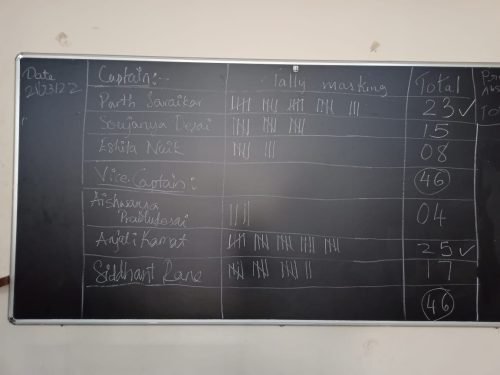 Date Captain:- Tally marking Total
Parth Saraikar 23 ✓
Soujanya Desai 15
Eshita Naik 08
Vice-Captain: 46
Aishwarya
Prabhudesai 04
Anjali Kamat 25 ✓
Siddhant Rane 17
46